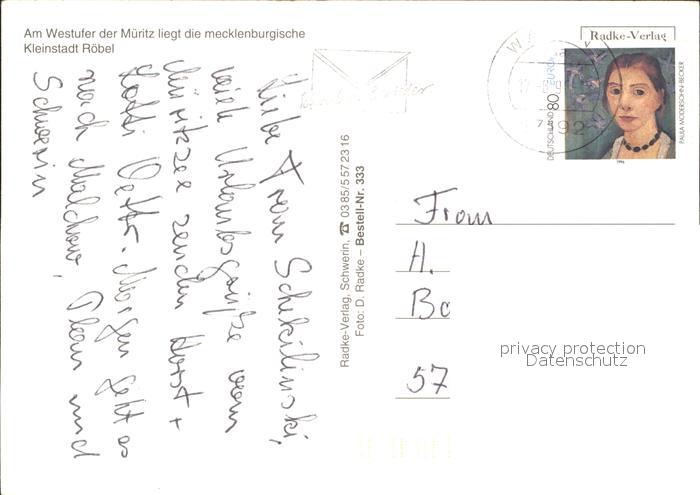 Am Westufer der Müritz liegt die mecklenburgische
Kleinstadt Röbel
Radke-Verlag
DEUTSCHLAND 80 EUROPA
PAULA MODERSOHN-BECKER
1996
Liebe Frau Schikilinski,
viele Urlaubsgrüße vom
Müritzsee senden Horst +
Morgen geht es
nach Malchow, Plau und
Schwerin
Radke-Verlag, Schwerin, ☎ 0385/5572316
Foto: D. Radke – Bestell-Nr. 333
Frau
H.
Bo
57
privacy protection
Datenschutz